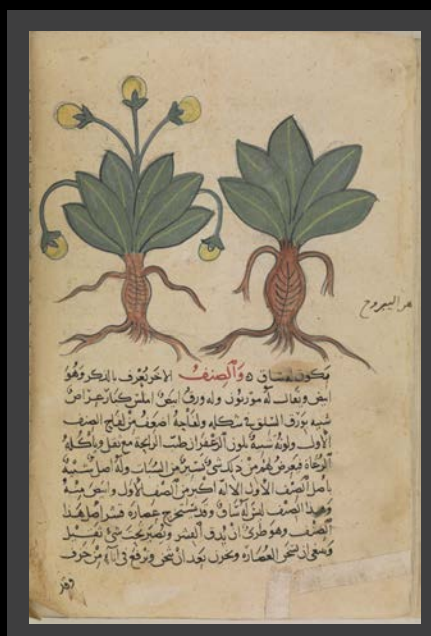 هو اليبروح
ويكون له ساق ۞ وَالصِنفُ الاخر يُعرف بالذكر وهُوَ
ابيض ويُقال له موريون وله ورق ابيض املس كبار عِراض
شبيه بورق السلق في شكله ولفاحه اضعف من لفاح الصنف
الأول ولونه شبيهٌ بلون الزعفران طيّب الرايحة مع ثقل ويأكله
الرُعاة فيعرض لهم من ذلك شيٌ يسيرٌ من السُبات وله اصل شبيه
باصل الصنف الأول الا انه اكبر من الصنف الأول وابيض منه
وهذا الصنف ليس له ساقٌ وقد يستخرج عصارة قشر اصل هذا
الصنف وهو طريٌ ان يُدق القشر ويُصير تحت شيءٍ ثقيل
وينبغي ان تسخن العصارة وتخزن بعد ان تثخن وترفع في اناءٍ من خزف